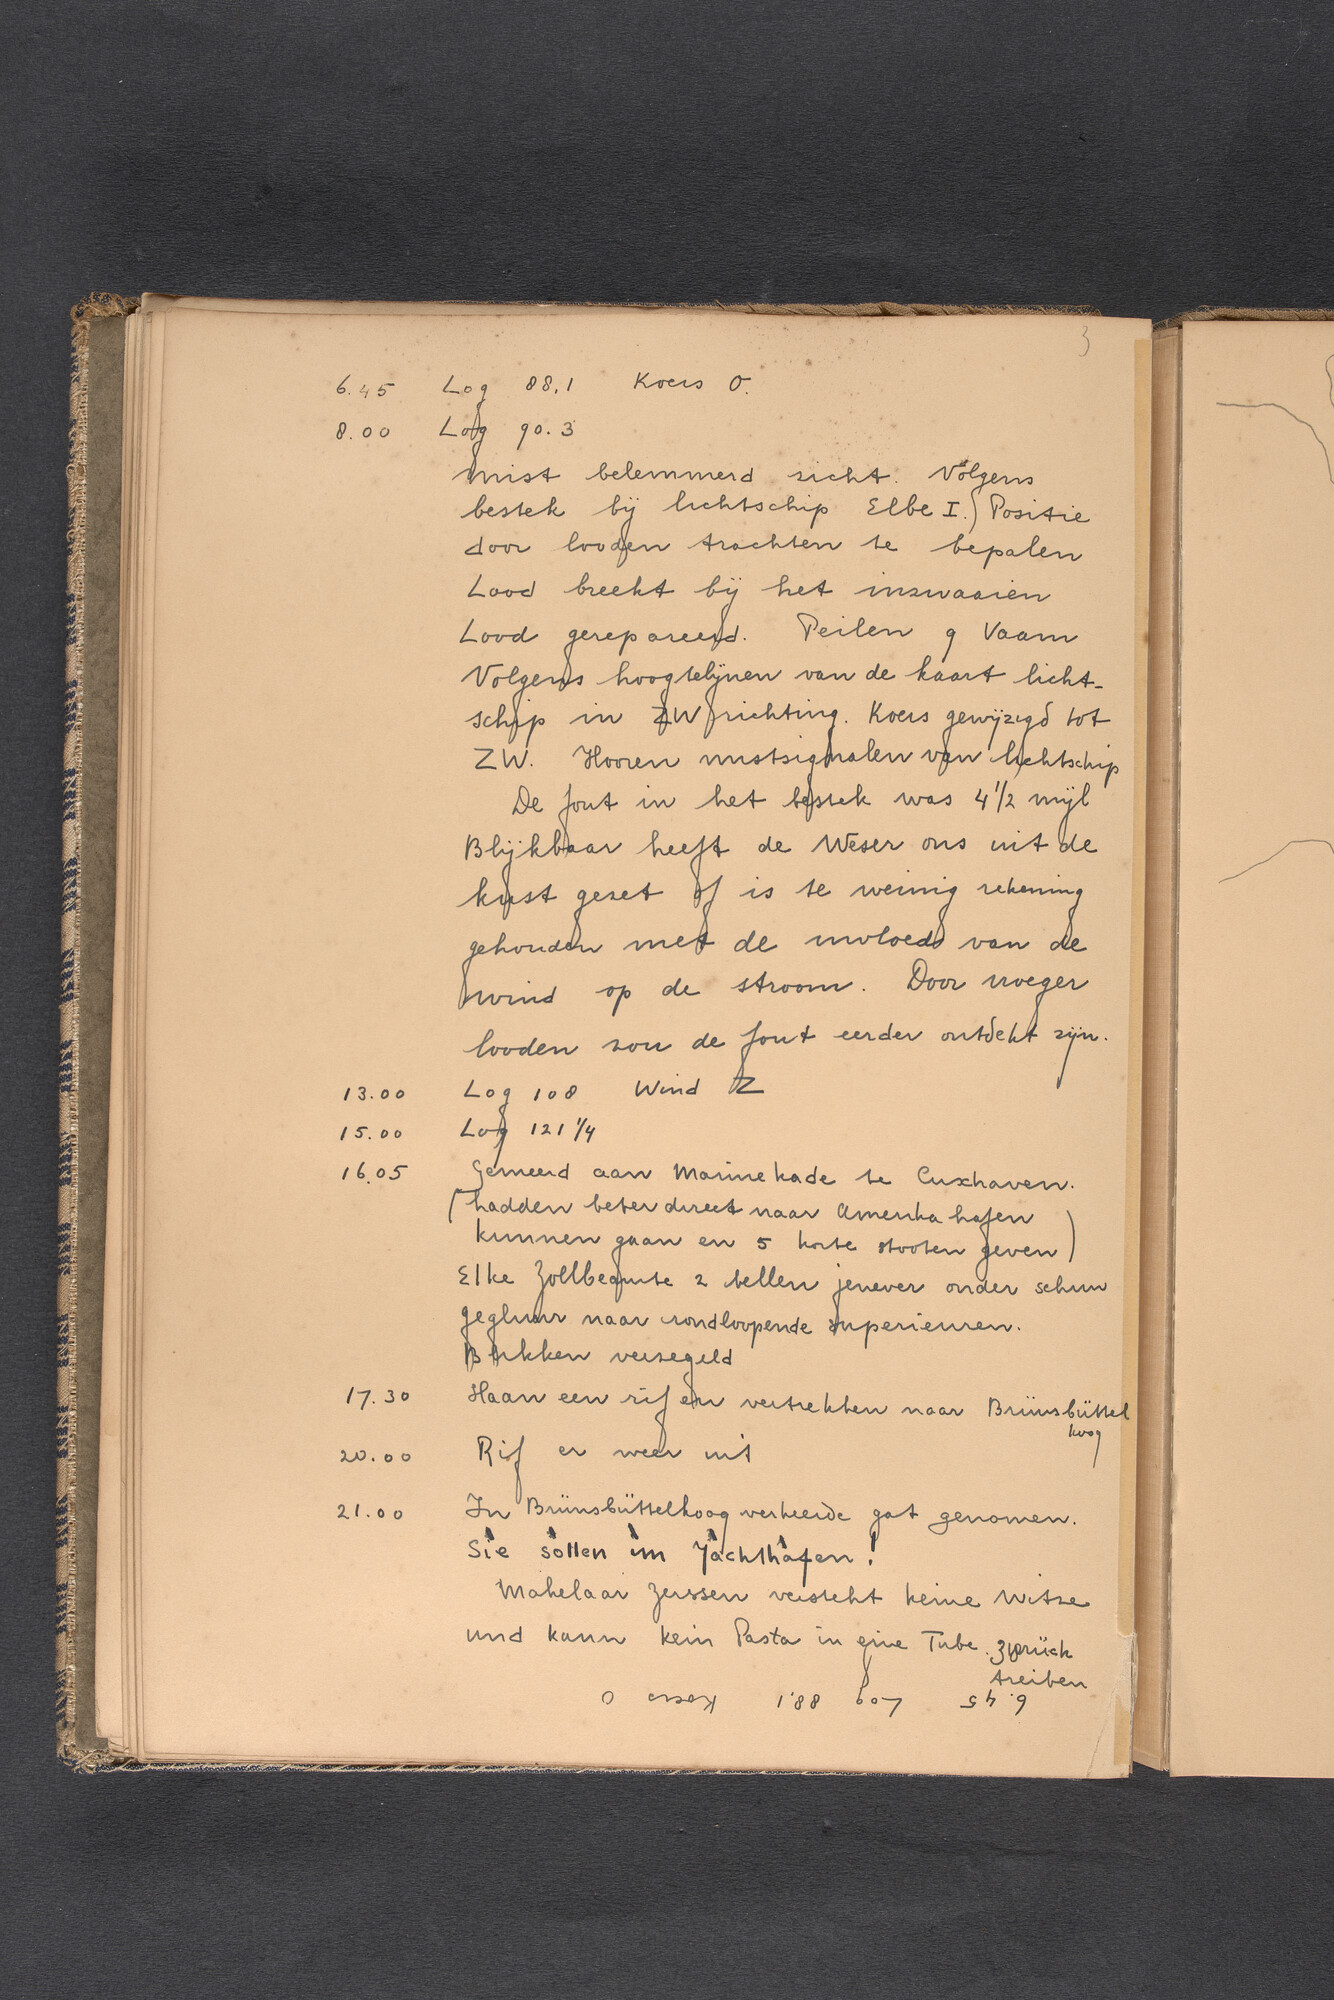 3
6.45 Log 88,1 Koers O.
8.00 Log 90.3
mist belemmerd zicht. Volgens
bestek bij lichtschip Elbe I. Positie
door looden trachten te bepalen
Lood breekt bij het inzwaaien
Lood gerepareerd. Peilen 9 Vaam
Volgens hoogtelijnen van de kaart licht-
schip in ZW richting. Koers gewijzigd tot
ZW. Hooren mistsignalen van lichtschip
De fout in het bestek was 4 1/2 mijl
Blijkbaar heeft de Weser ons uit de
kust gezet of is te weinig rekening
gehouden met de invloed van de
wind op de stroom. Door vroeger
looden zou de fout eerder ontdekt zijn.
13.00 Log 108 Wind Z
15.00 Log 121 1/4
16.05 Gemeerd aan Marinekade te Cuxhaven.
(hadden beter direct naar Amerika hafen
kunnen gaan en 5 korte stooten geven)
Elke Zollbeamte 2 tellen jenever onder schuw
gegluur naar rondloopende superieuren.
Blikken verzegeld
17.30 Slaan een rif en vertrekken naar Brünsbüttel
koog
20.00 Rif er weer uit
21.00 In Brünsbüttelkoog verkeerde gat genomen.
Sie sollen im Jachthafen!
Makelaar Zerssen versteht keine Witze
und kann kein Pasta in eine Tube zurück
treiben
6.45 Log 88.1 Koers O